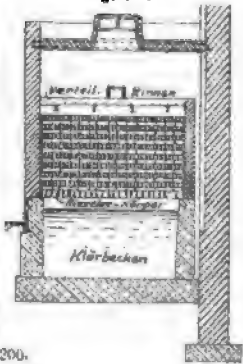 Verteil. Rinnen
Klärbecken
200.